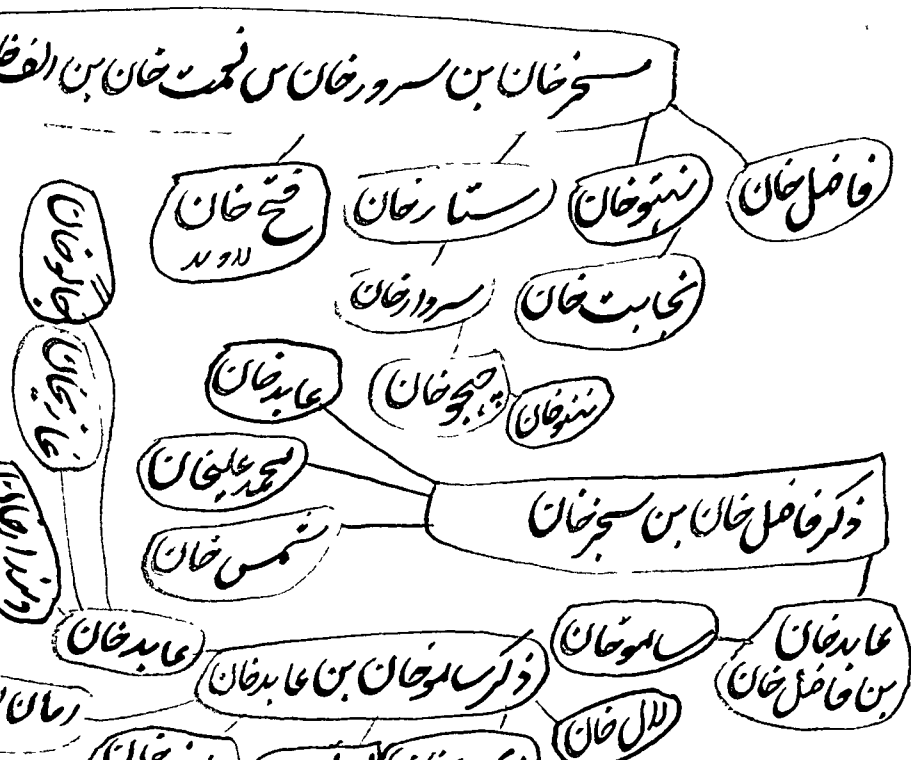 سنجر خان بن سرور خان بن نعمت خان بن الف
فاضل خان
ننوخان
ستار خان
فتح خان
لاولد
نجابت خان
سردار خان
چھجو خان
ننوخان
عابد خان
محمد علیخان
شمس خان
ذکر فاضل خان بن سنجر خان
عابد خان
بن فاضل خان
سالمو خان
لال خان
ذکر سالمو خان بن عابد خان
عابد خان
غازیخان